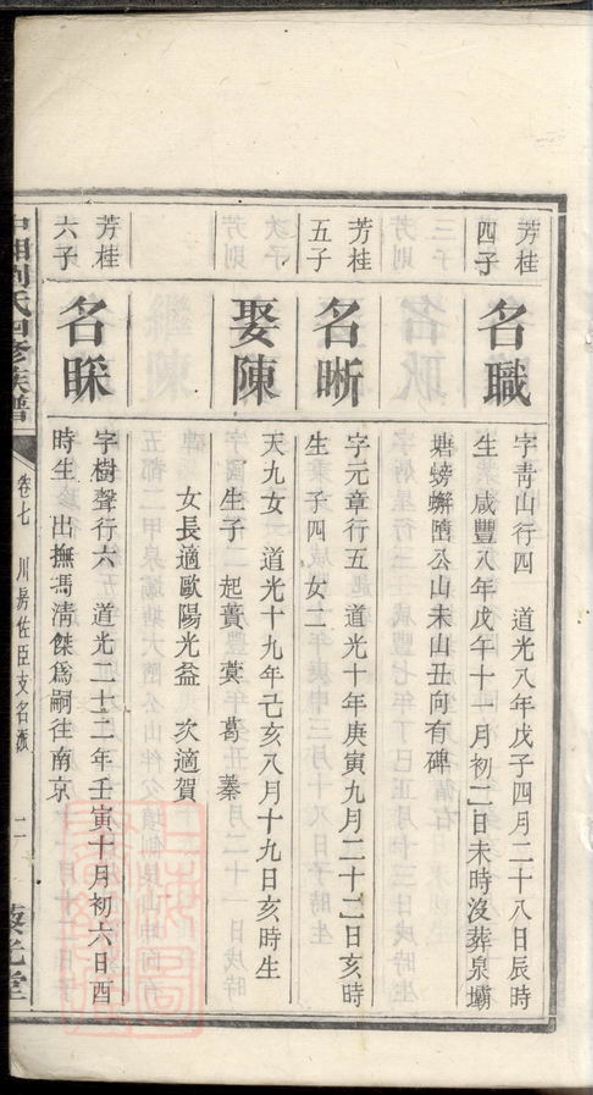 芳桂
四子
名職
字靑山行四　道光八年戊子四月二十八日辰時
生　咸豐八年戊午十一月初二日未時沒葬泉壩
塘螃蠏墮公山未山丑向有碑
芳桂
五子
名晰
字元章行五　道光十年庚寅九月二十二日亥時
生　子四　女二
娶陳
天九女　道光十九年己亥八月十九日亥時生
生子　起蕢　蓂　葛　蓁
女長適歐陽光益　次適賀
芳桂
六子
名睬
字樹聲行六　道光二十二年壬寅十月初六日酉
時生　出撫馮淸傑爲嗣往南京
中湘劉氏四修族譜
卷七　川房佐臣支名派　二